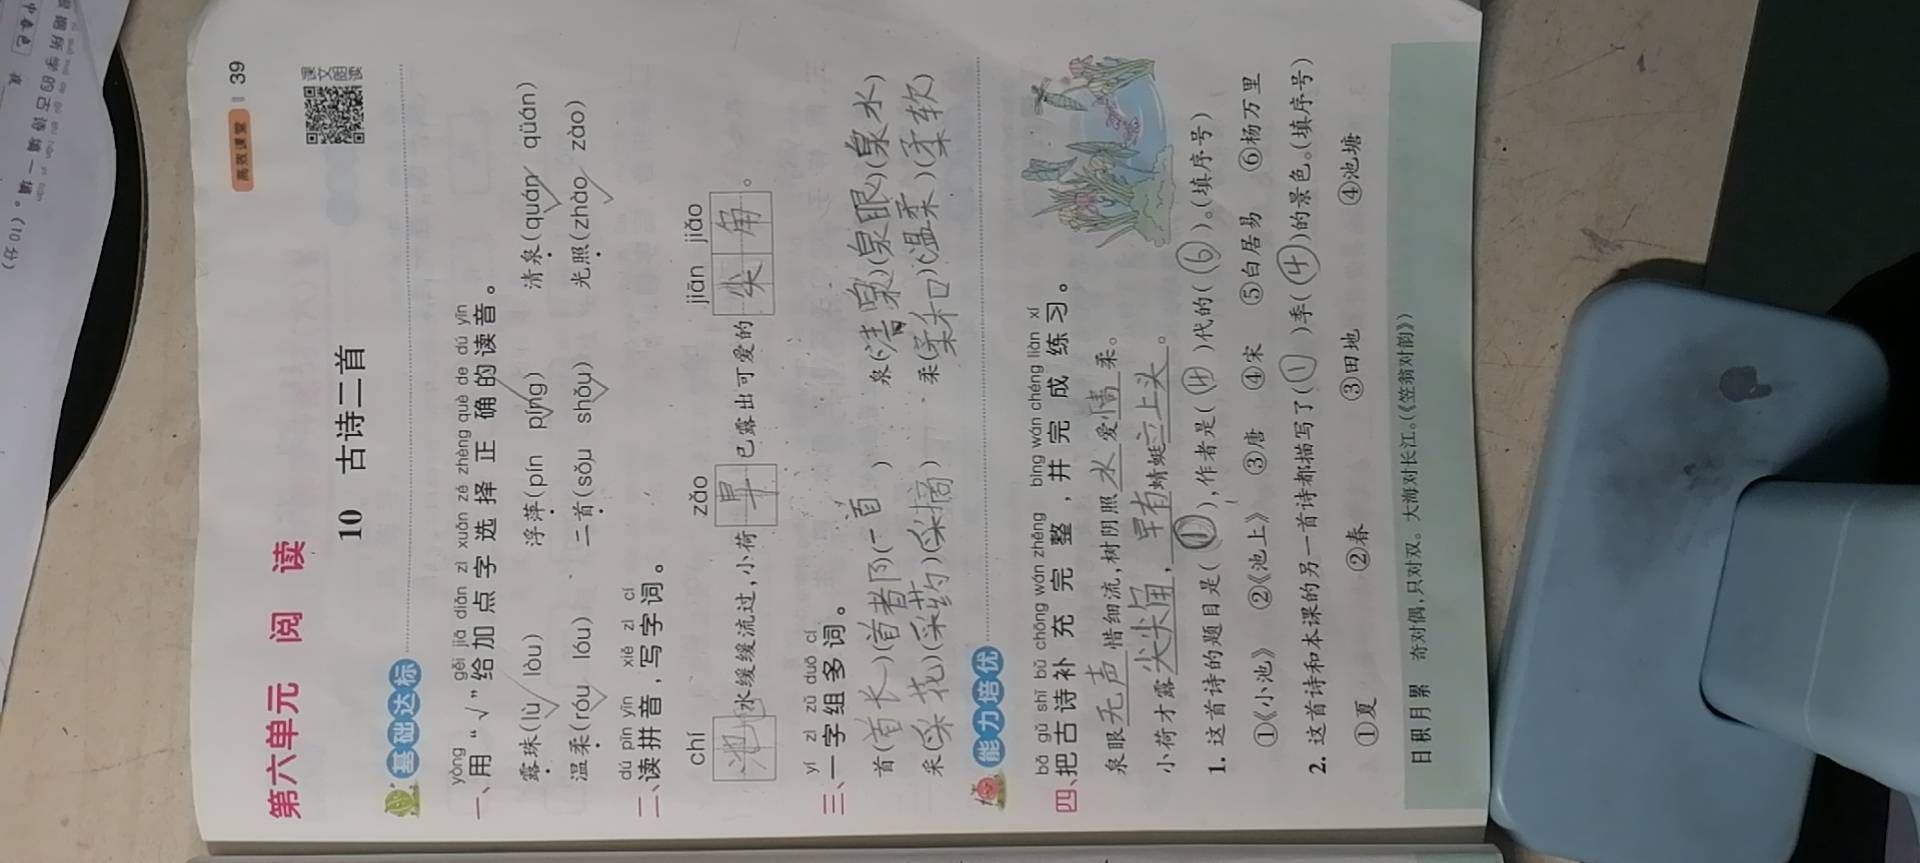 高效课堂 39
第六单元 阅 读
10 古诗二首
课文朗读
基础达标
yòng gěi jiā diǎn zì xuǎn zé zhèng què de dú yīn
一、用“√”给加点字选择正确的读音。
露珠(lù√ lòu) 浮萍(pín píng√) 清泉(quán√ qüán)
温柔(róu√ lóu) 二首(sǒu shǒu√) 光照(zhào√ zào)
dú pīn yīn xiě zì cí
二、读拼音,写字词。
chí zǎo jiān jiǎo
池水缓缓流过,小荷早已露出可爱的尖角。
yí zì zǔ duō cí
三、一字组多词。
首(首长)(首都)(一首) 泉(清泉)(泉眼)(泉水)
采(采花)(采药)(采摘) 柔(柔和)(温柔)(柔软)
能力培优
bǎ gǔ shī bǔ chōng wán zhěng bìng wán chéng liàn xí
四、把古诗补充完整,并完成练习。
泉眼无声惜细流,树阴照水爱情柔。
小荷才露尖尖角,早有蜻蜓立上头。
1. 这首诗的题目是(①),作者是(④)代的(⑥)。(填序号)
①《小池》 ②《池上》 ③唐 ④宋 ⑤白居易 ⑥杨万里
2. 这首诗和本课的另一首诗都描写了(①)季(④)的景色。(填序号)
①夏 ②春 ③田地 ④池塘
日积月累 奇对偶,只对双。大海对长江。(《笠翁对韵》)